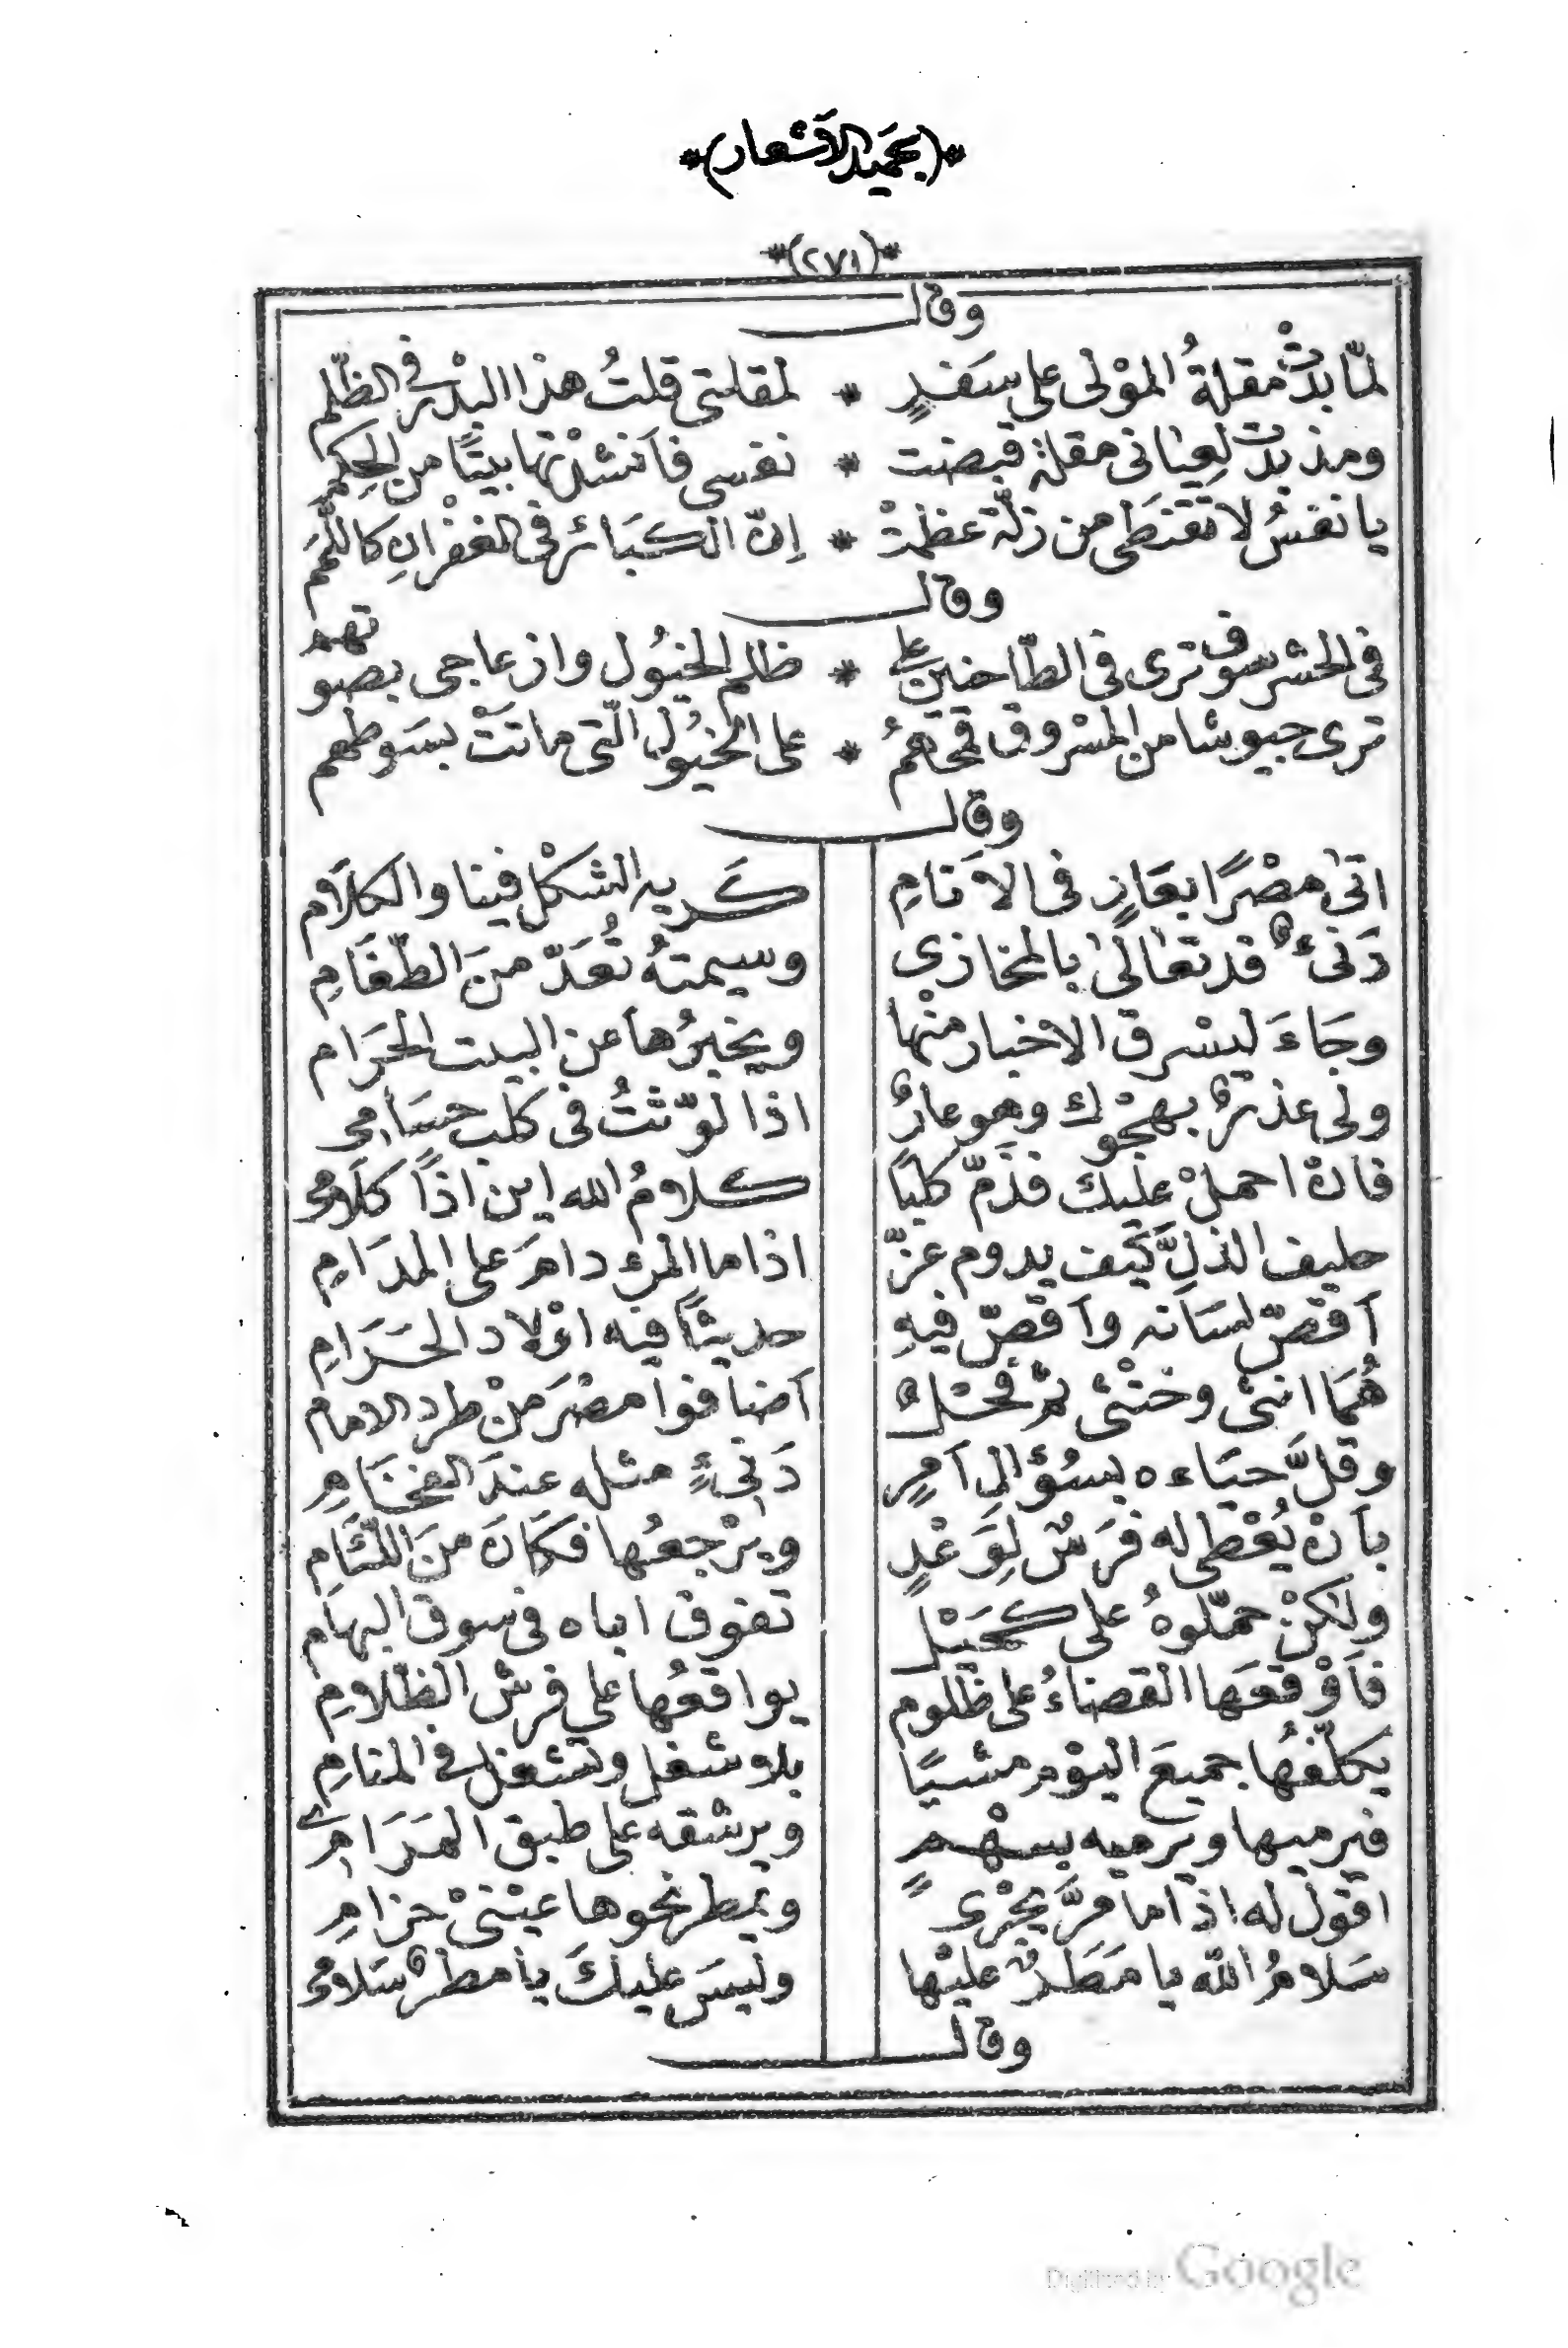 *(بحميد الاَشعار)*
*(٢٧١)*
وقال
لمّا بدتْ مقلةُ المَوْلى على سَفَدٍ * لمقلتى قلتُ هذا البدْر فى الظّلم
ومذ بدت لعيانى مقلة قبضت * نفسى فأنشدْتها بيتًا من الحِكم
يا نفسُ لا تقنطى من زلّة عظمتْ * إنّ الكبَائر فى الغفْرانِ كاللّمَم
وقال
فى الحشر سوف ترى فى الطّاحنين على * ظلم الخيُول وازعاجى بصوتهم
ترى جيوشا من المسْروق قمحهمُ * على الخيُول الّتى ماتَتْ بسَوطهم
وقال
اتى مصْرًا بعَارٍ فى الاَنامِ كَريه الشكْل فينا والكلاَم
دَنىءٌ قد تعالىٰ بالمخازى وسيمتهُ تُعَدّ منَ الطّغَامِ
وجَاءَ ليسْرق الاخبار منْها ويخبرُها عن البيت الحَرَام
ولى عذرٌ بهجْوك وهو عارٌ اذا لوّثتُ فى كلب حسَامى
فان احملْ عليك فذَمّ كلبًا كلامُ الله اين اذًا كلَامى
حليف الذلِّ كَيف يدوم عزّ اذا ما المرء دامَ على المدَامِ
اَقصّ لسَانه واَقصّ فيهِ حديثًا فيه اوْلاد الحَرَامِ
هُمَا انثى وخنْثى ثم فحْلٌ اَضافوا مضْرَ مَنْ طرد الامام
وقلَّ حيَاءه بسُؤالِ اَمرٍ دَنىءٍ مثله عندَ الفخَامِ
باَنْ يُعْطى له فرَسٌ لِوَغْدٍ ويرْجعُها فكَانَ منَ اللّئَامِ
ولكنْ حمّلوهُ على كحَيْل تفوق اباه فى سوق البهَام
فاَوْقعَها القضاءُ على ظلوم يواقعُها على فرش الظّلامِ
يكلّفُها جميعَ اليَوْم مشيًا بلا شغل وتشغل فى المنامِ
فيرميها ويرميه بسهْمٍ ويرشقه على طبق المرَامِ
اقول له اذا ما مرَّ يجْرى ويمطر نحوها عيْنىْ حزامِ
سَلامُ الله يا مَطَرٌ عليْها وليسَ عليكَ يا مطرٌ سَلامى
وقال
Digitized by Google